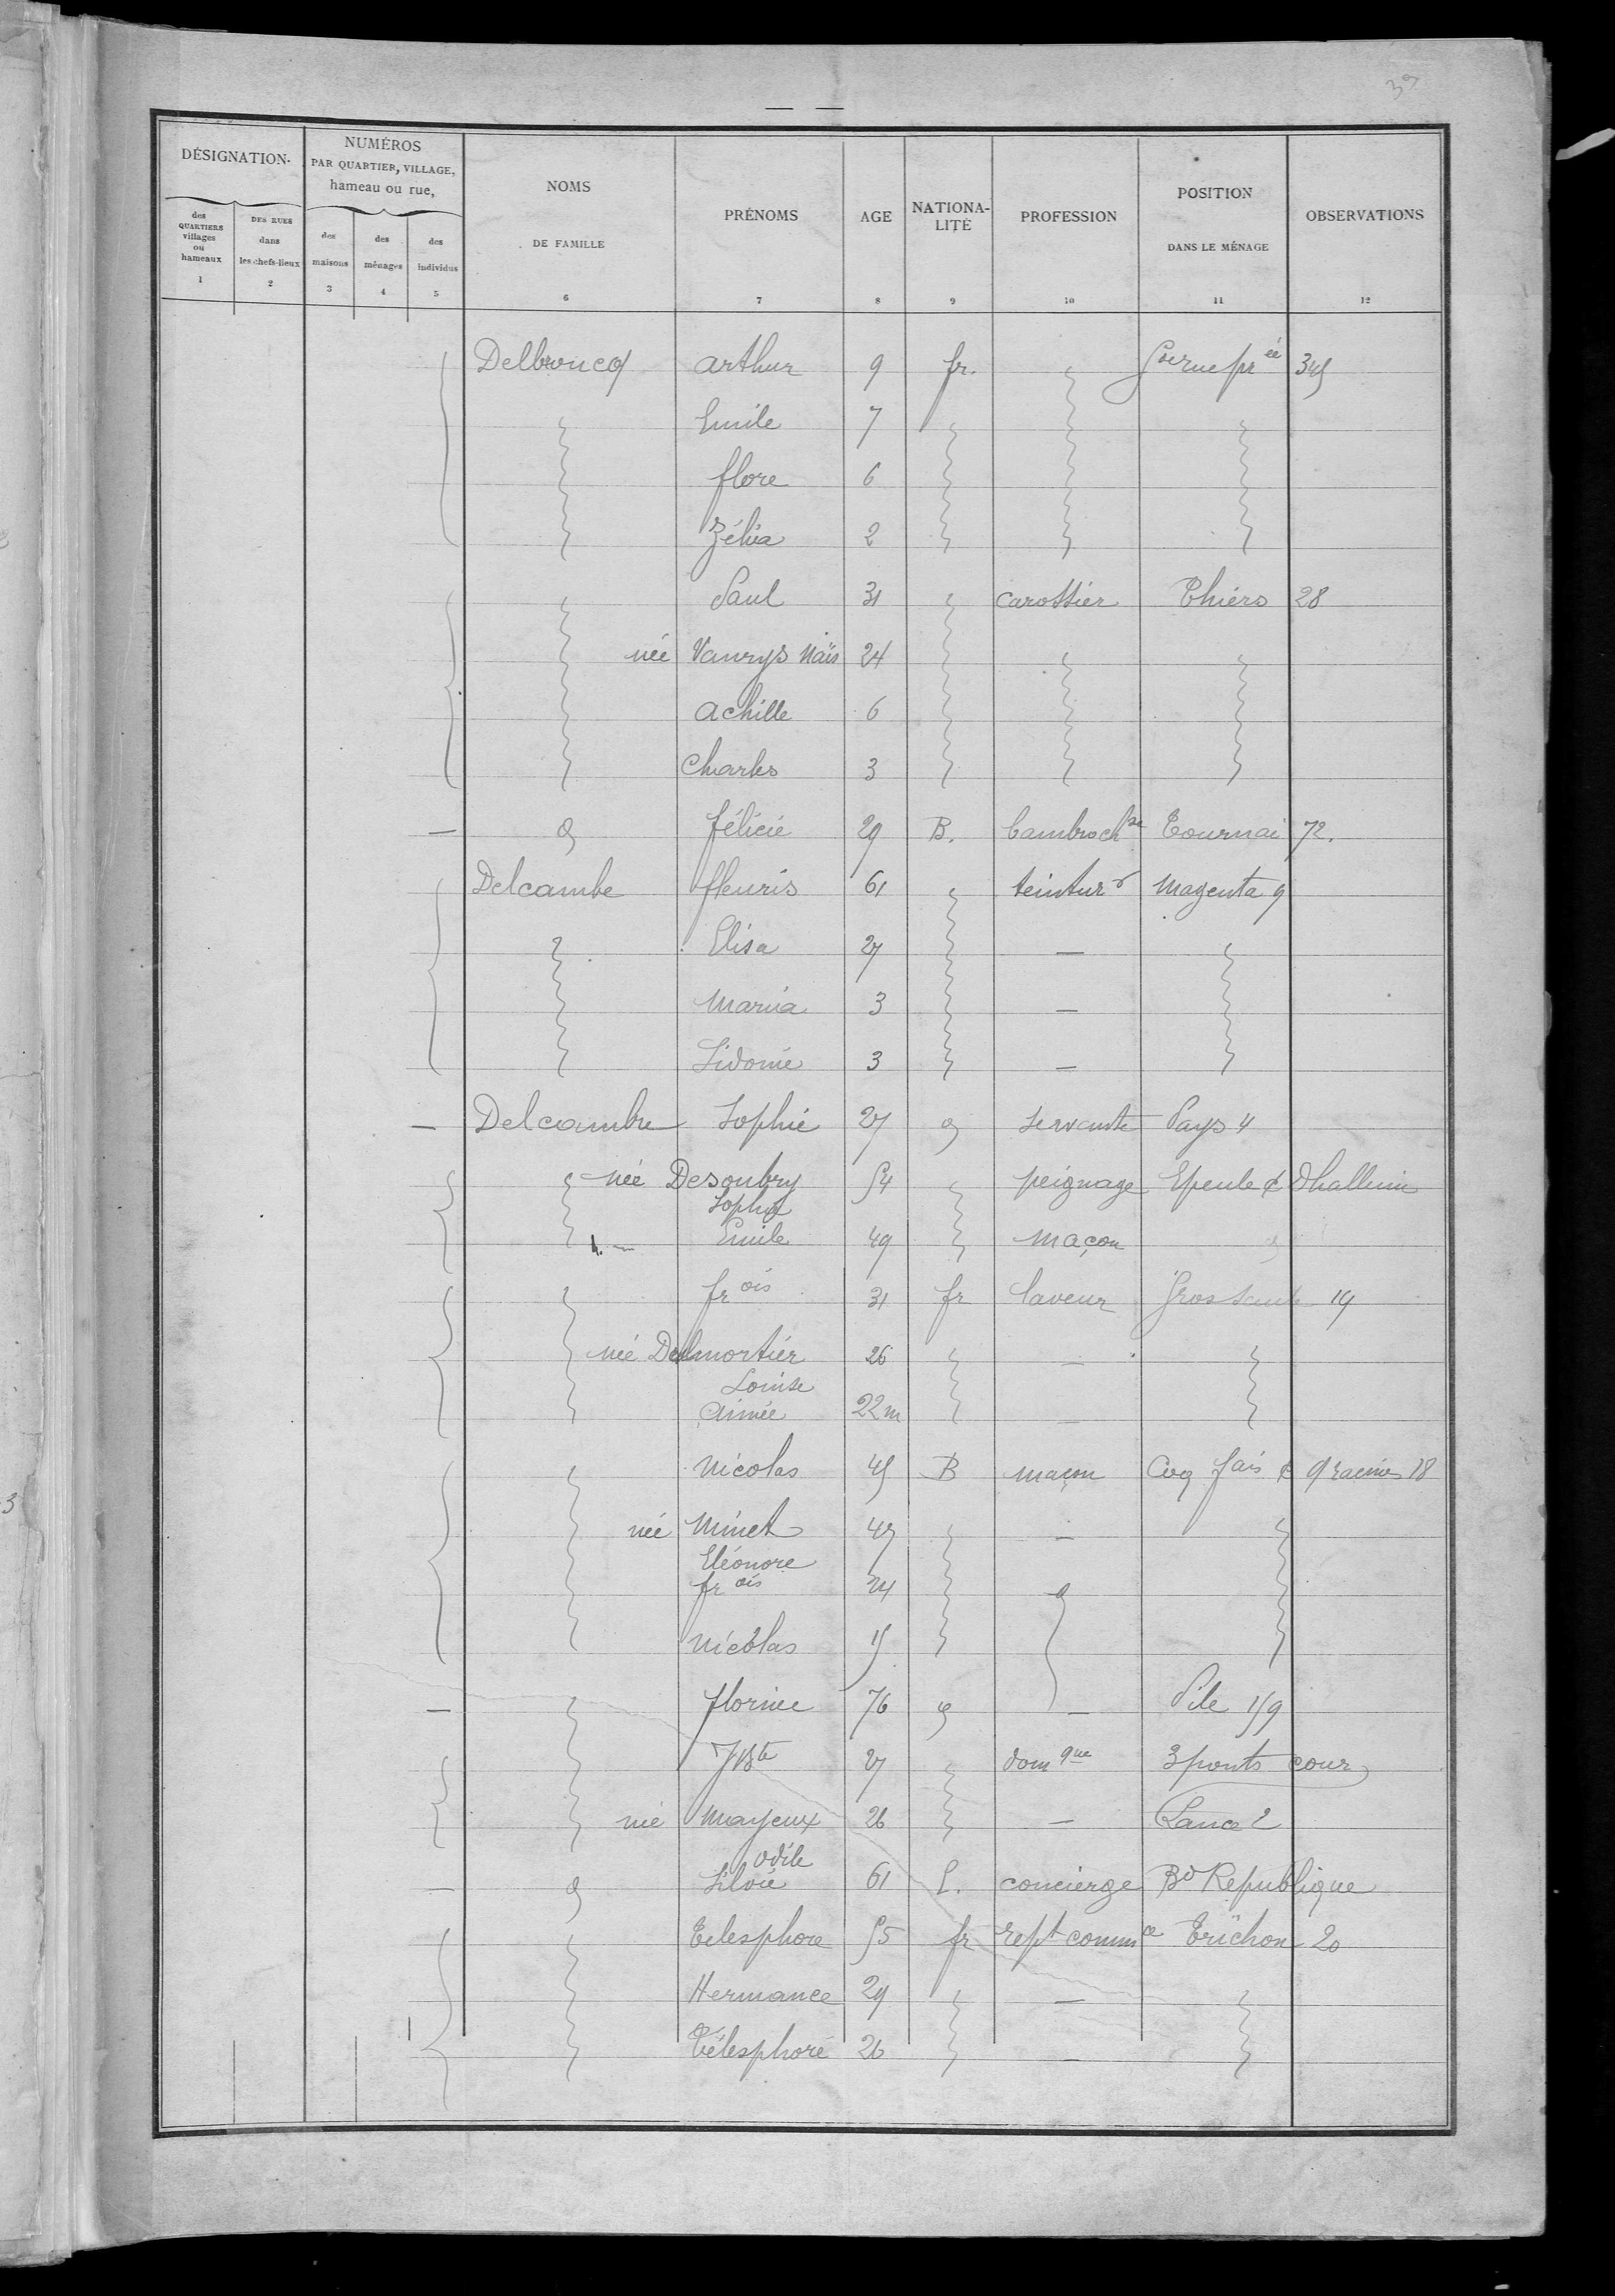 39
DÉSIGNATION
NUMÉROS
PAR QUARTIER, VILLAGE,
hameau ou rue,
NOMS
DE FAMILLE
PRÉNOMS
AGE
NATIONA-
LITÉ
PROFESSION
POSITION
DANS LE MÉNAGE
OBSERVATIONS
des QUARTIERS villages ou hameaux
DES RUES dans les chefs-lieux
des maisons
des ménages
des individus
1 2 3 4 5 6 7 8 9 10 11 12
Delbroucq arthur 9 fr.
Emile 7
flore 6
Zélia 2
Paul 31 carottier Thiers 28
née Vanrys Naïs 24
achille 6
Charles 3
félicie 29 B. Cambroch se Tournai 72.
Delcambe fleuris 61 teintur r Magenta 9
Elisa 27 —
Maria 3 —
Sidonie 3 —
Delcambre Sophie 27 servante Pays 4
née Desoubry 54 peignage Epeule c Dhalluin
Sophie
Emile 49 maçon
fr ois 31 fr laveur 19
née Delmortier 26 —
Louise
Aimée 22 m —
Nicolas 45 B maçon Coq fais c 18
née Minet 45 —
Eléonore
fr ois 24
Nicolas 15
florine 76 — Pile 159
JBte 27 dom que 3 ponts cour
née Mayeux 26 — Lance 2
Odile
Silvie 61 concierge Bd Republique
Telesphore 55 fr rept comm ce Trichon 20
Hermance 29 —
Télesphore 26 —